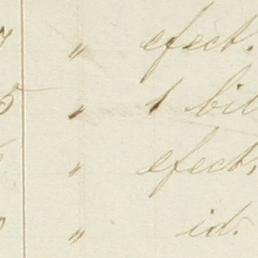 " efect.
5 " 1 bil
" efect.
" id.